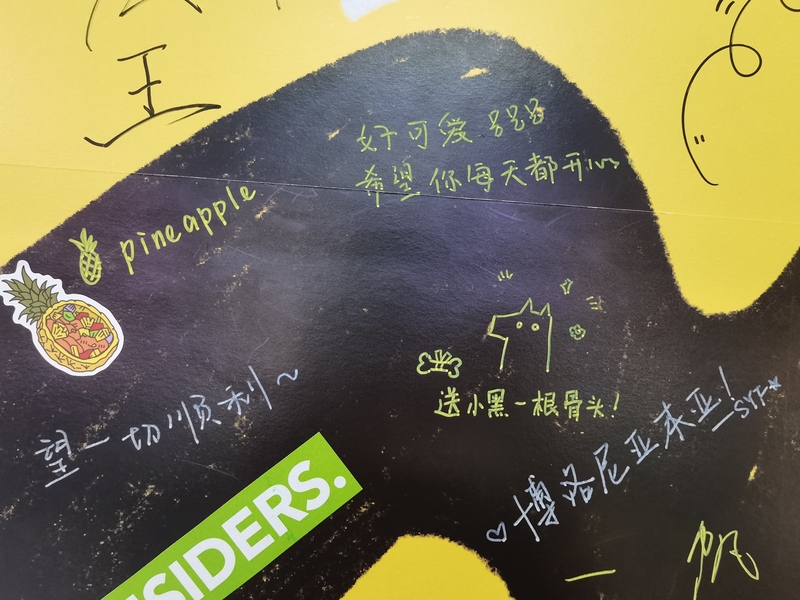 王
好可爱
希望你每天都开心
pineapple
送小黑一根骨头!
望一切顺利~
博洛尼亚来亚!
SYT*
SIDERS.
一帆